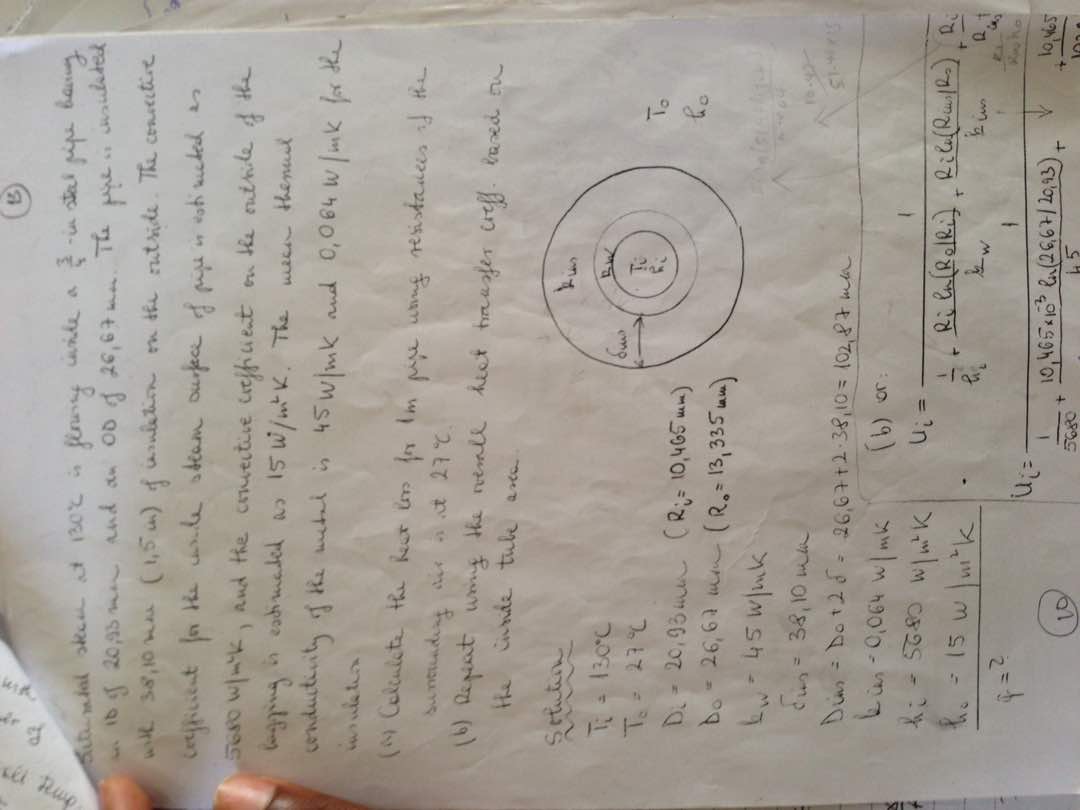 (13)
Saturated steam at 130°C is flowing inside a 3/4-in steel pipe having
an ID of 20,93 mm and an OD of 26,67 mm. The pipe is insulated
with 38,10 mm (1,5 in) of insulation on the outside. The convective
coefficient for the inside steam surface of pipe is estimated as
5680 W/m²K, and the convective coefficient on the outside of the
lagging is estimated as 15 W/m²K. The mean thermal
conductivity of the metal is 45 W/mK and 0,064 W/mK for the
insulation
(a) Calculate the heat loss for 1m pipe using resistances if the
surrounding air is at 27°C.
(b) Repeat using the overall heat transfer coeff. based on
the inside tube area.
Solution
Ti = 130°C
To = 27°C
Di = 20,93 mm (Ri = 10,465 mm)
Do = 26,67 mm (Ro = 13,335 mm)
kw = 45 W/mK
δins = 38,10 mm
Dins = Do + 2δ = 26,67 + 2·38,10 = 102,87 mm
kins = 0,064 W/mK
hi = 5680 W/m²K
ho = 15 W/m²K
q = ?
kins
kw
Ti
hi
δins
To
ho
(b) or:
Ui = 1 / (1/hi + Ri ln(Ro/Ri)/kw + Ri ln(Rins/Ro)/kins + Ri
Rins
Ui = 1 / (1/5680 + 10,465×10⁻³ ln(26,67/20,93)/45 + ↓ + 10,465
(10)